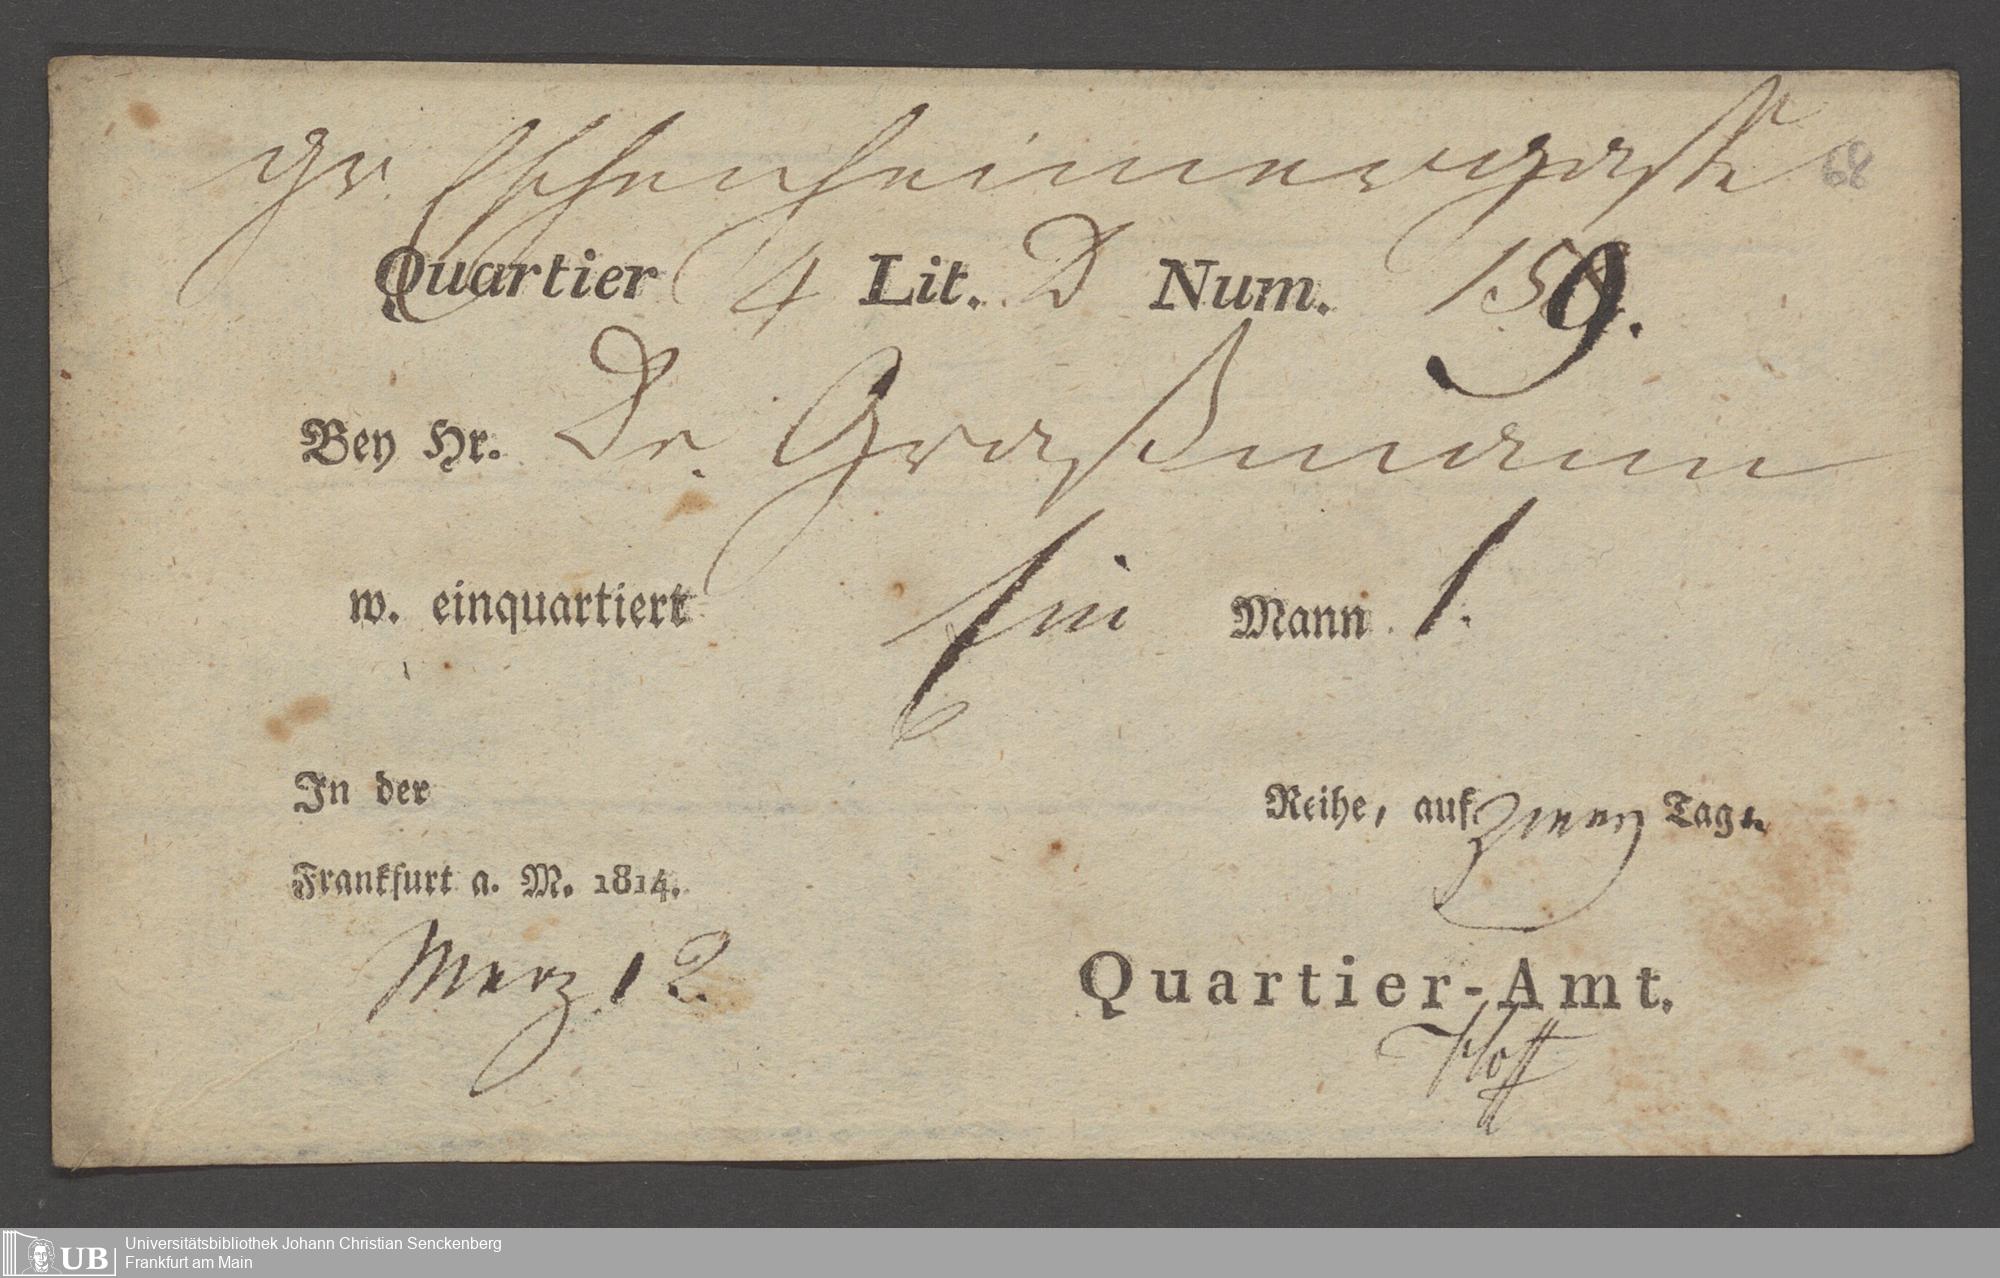 gr Eschenheimergasse
68
Quartier 4 Lit. D Num. 159.
Bey Hr. Dr. Graßmann
w. einquartiert Ein Mann 1.
In der Reihe, auf zwey Tage
Frankfurt a. M. 1814.
Merz 12.
Quartier-Amt.
Hoff
UB Universitätsbibliothek Johann Christian Senckenberg
Frankfurt am Main